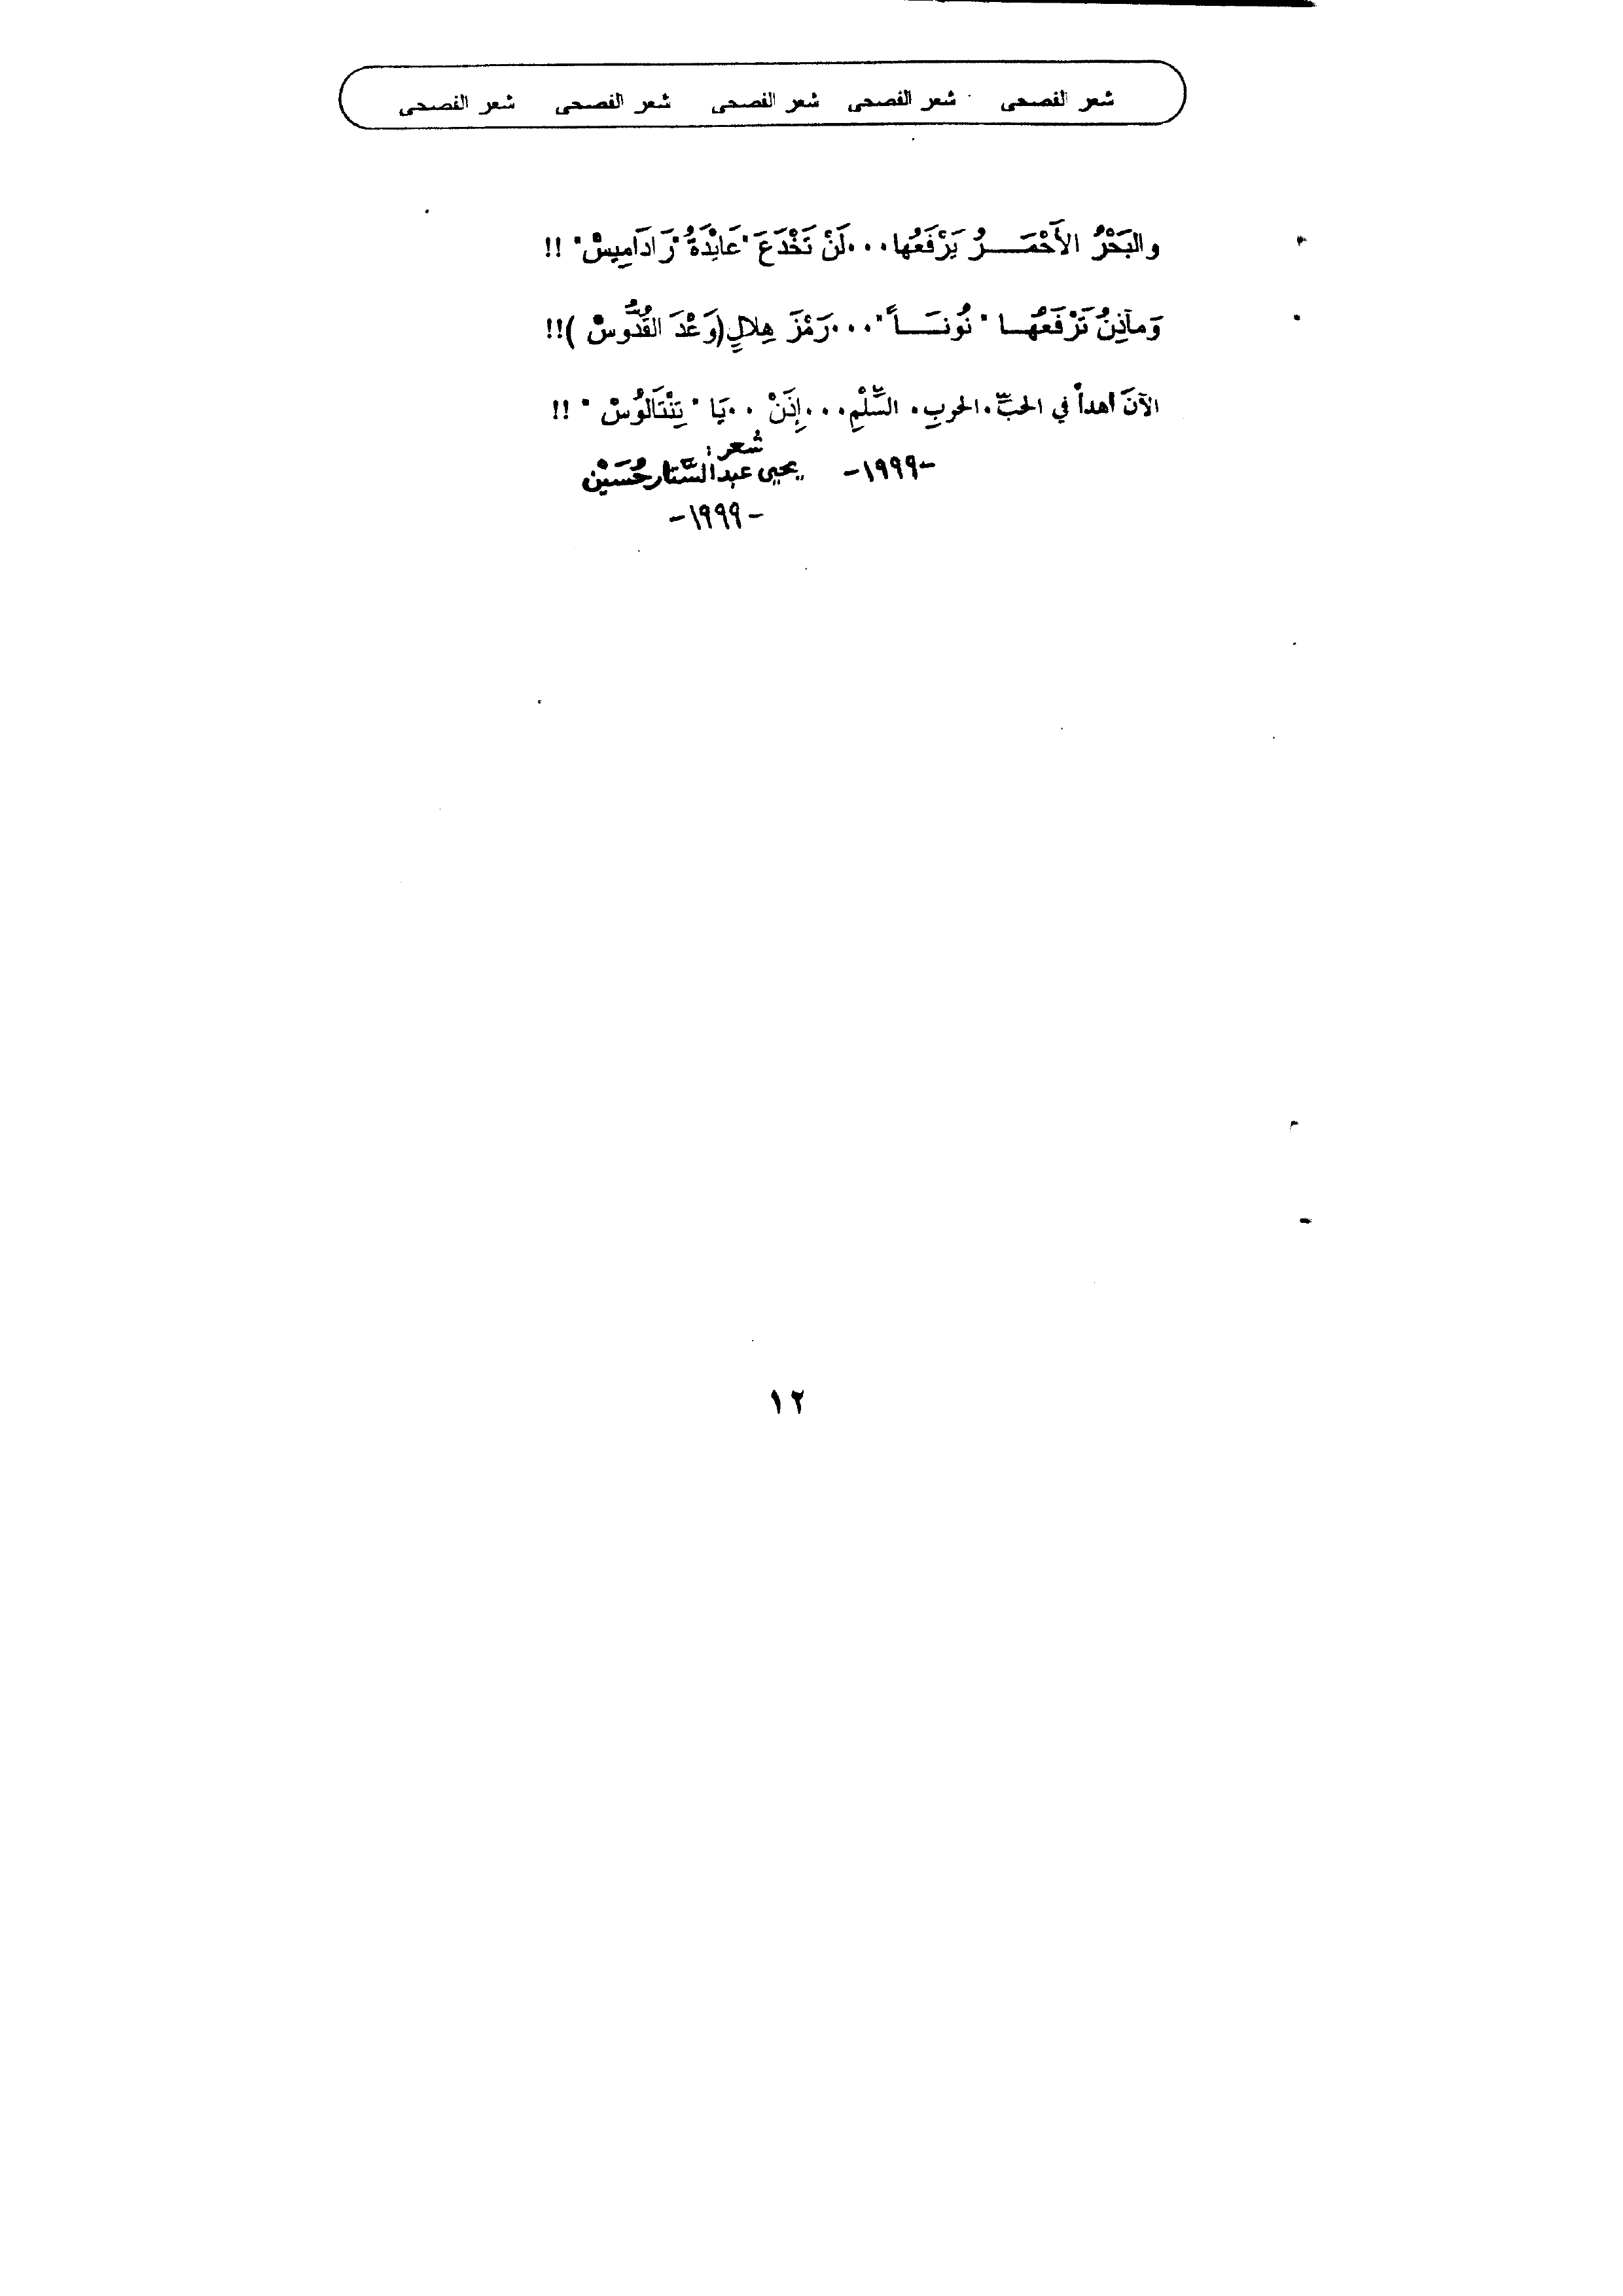 شعر الفصحى شعر الفصحى شعر الفصحى شعر الفصحى شعر الفصحى
والبَحْرُ الأَحْمَـــرُ يَرْفَعُها...لَنْ تَخْدَعَ "عَائِدَةُ" رَادَامِيسْ" !!
وَمآذِنُ تَرْفَعُهَــا "نُونــَـاً"...رَمْزَ هِلالٍ(وَعْدَ القُدُّوسْ )!!
الآنَ أهدأ في الحبِّ.الحربِ. السِّلْمِ...إِذَنْ ..يَا "تِنْتَالُوُسْ " !!
شُعر:
-١٩٩٩- يحيى عبد السَّتار حُسَيْن
-١٩٩٩-
١٢